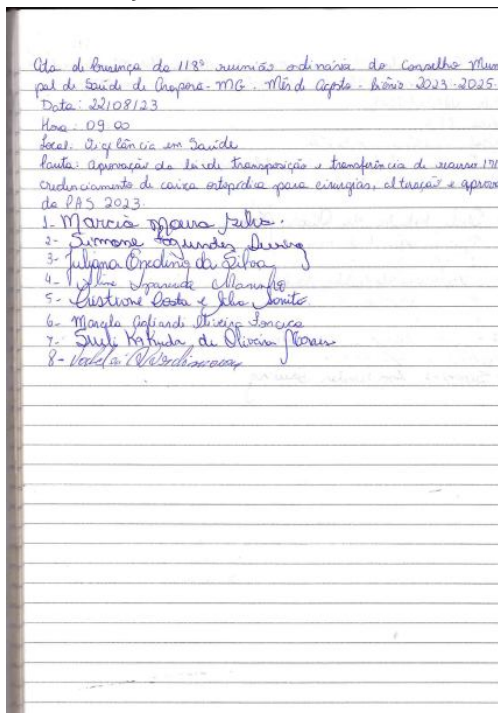 Ata de Presença da 118ª reunião ordinária do Conselho Muni
pal de Saúde de Araporã-MG. Mês de Agosto - biênio 2023-2025.
Data: 22/08/23
Hora: 09:00
Local: Vigilância em Saúde
Pauta: aprovação da lei de transposição e transferência de recurso
credenciamento de caixa ortopédica para cirurgias, alteração e aprova
da PAS 2023.
1- Marcia Moura
2- Simone Fagundes
3- Juliana da Silva
4- Aline Aparecida
5- Cristiane Costa e Silva
6- Marcela Oliveira Fonseca
7- Sueli Kakuda de Oliveira Moraes
8-